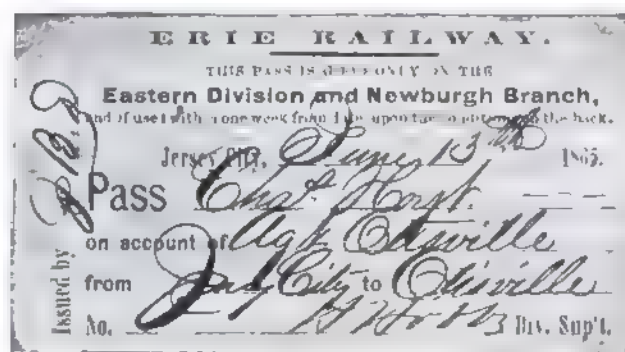 ERIE RAILWAY.
THIS PASS IS GOOD ONLY ON THE
Eastern Division and Newburgh Branch,
and if used within one week from date upon the conditions on the back.
Jersey City, June 13th 1865.
Pass Chas. Hoyt.
on account of Agt Otisville
from Jersey City to Otisville
No. Div. Sup't.
Issued by